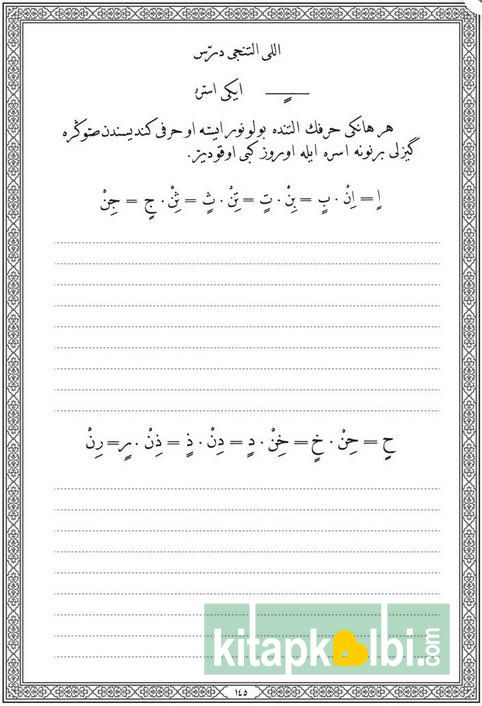 اللى التنجى درس
ـــٍـــ ايكى استره
هر هانكى حرفك التنده بولونور ايسه او حرفى كنديسندن صوڭره
گيزلى بر نونه اسره ايله اوروز كبى اوقوديرّ.
اٍ = اِنْ · بٍ = بِنْ · تٍ = تِنْ · ثٍ = ثِنْ · جٍ = جِنْ
حٍ = حِنْ · خٍ = خِنْ · دٍ = دِنْ · ذٍ = ذِنْ · رٍ = رِنْ
kitapkalbi.com
١٤٥